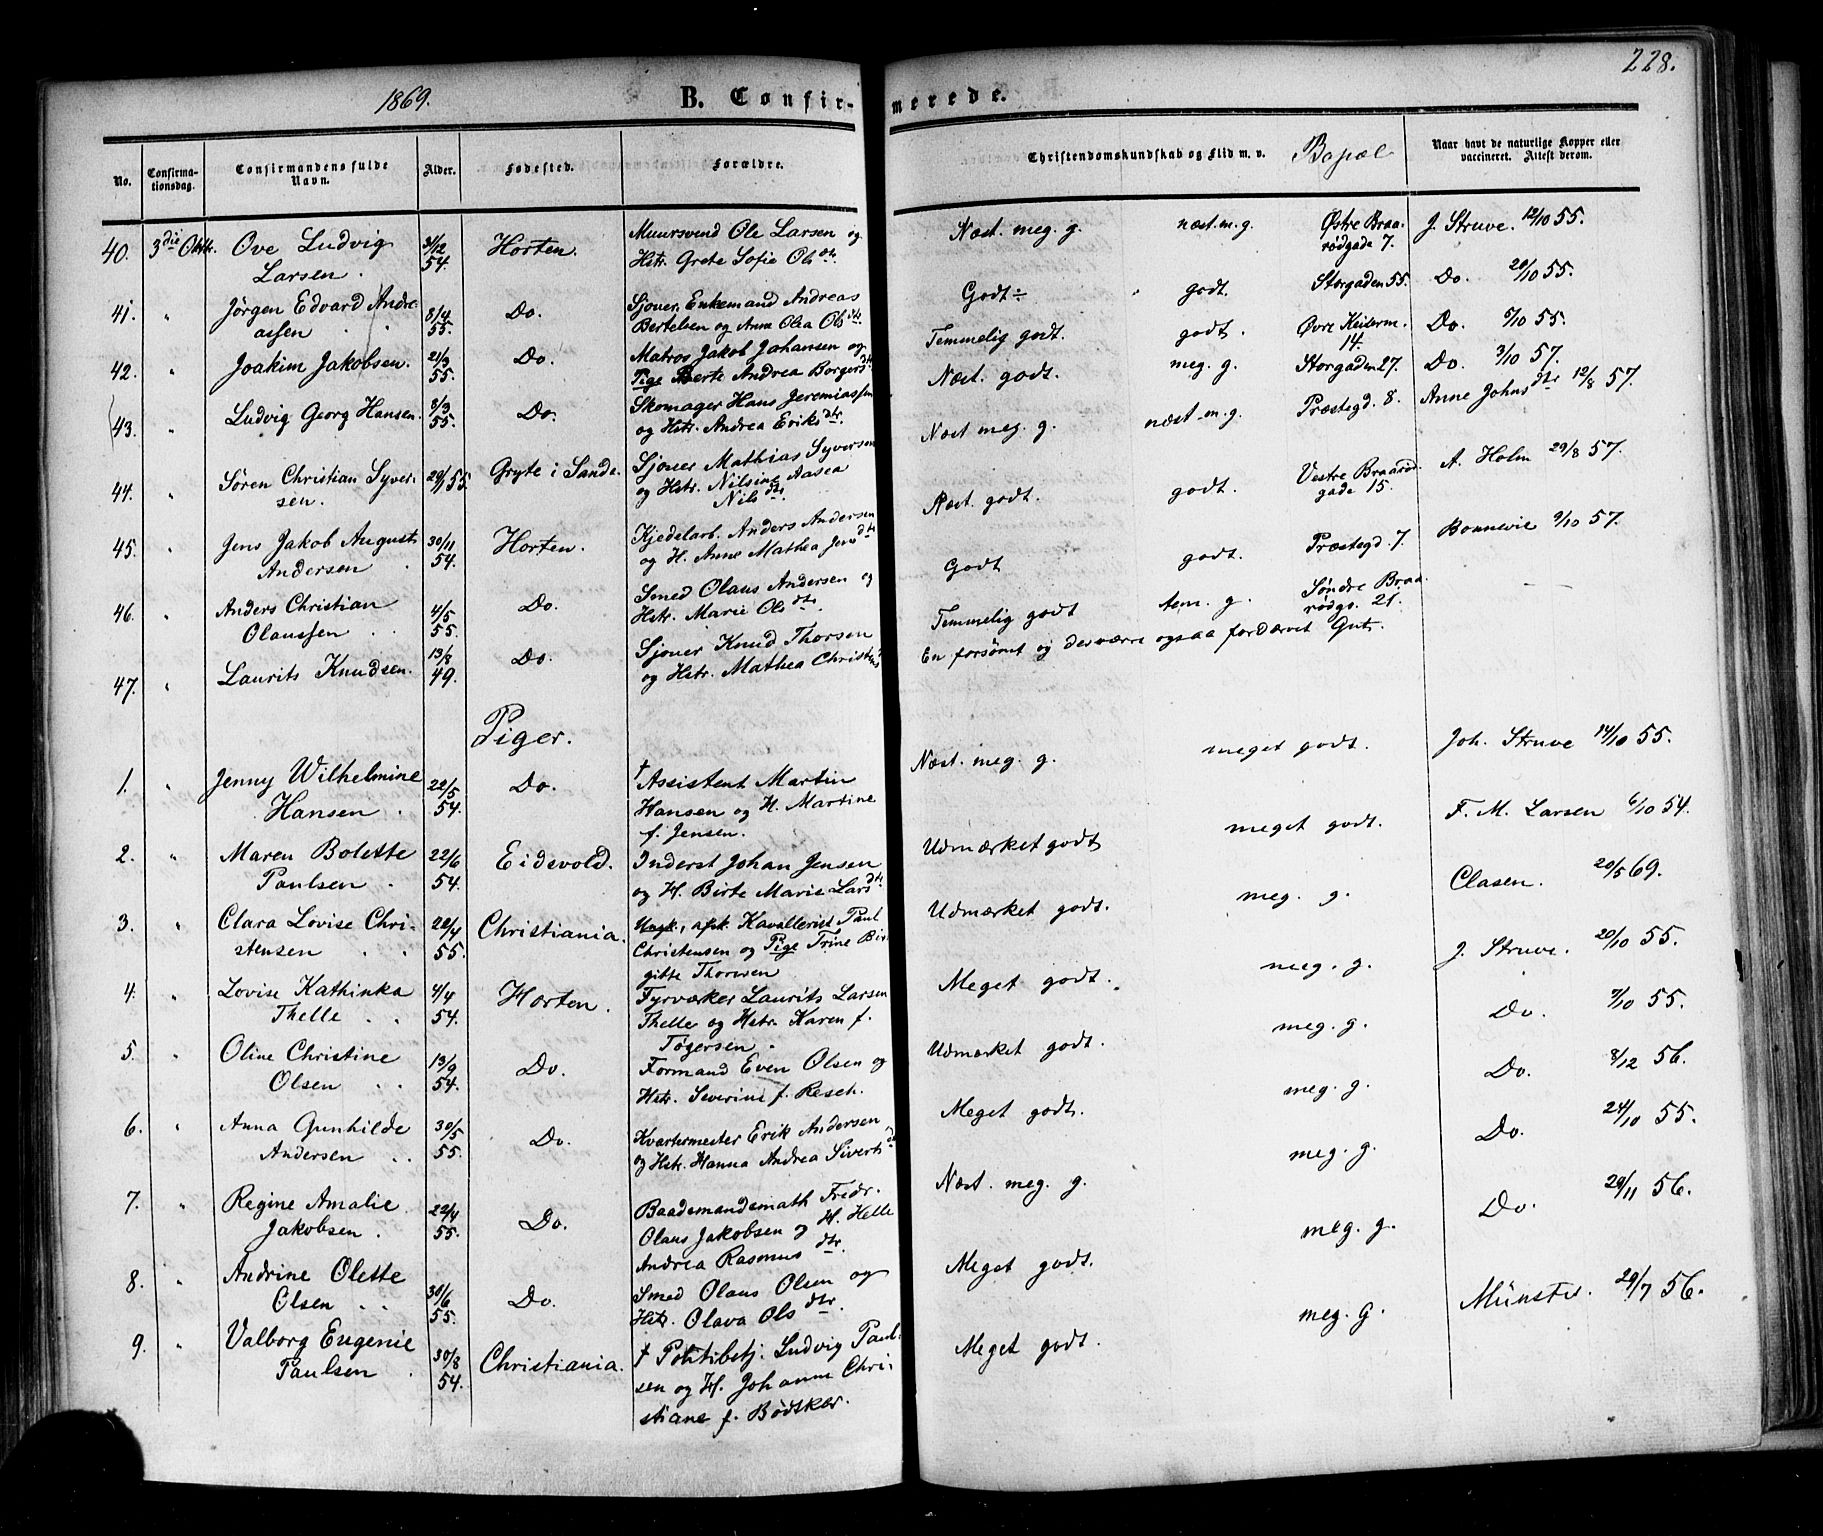 228.
1869.
B. Confirmerede.
No.
Confirmationsdag.
Confirmandens fulde Navn.
Alder.
Fødested.
Forældre.
Christendomskundskab og Flid m. v.
Bopæl
Naar havt de naturlige Kopper eller vaccineret. Attest derom.
40. 3die Oktbr. Ove Ludvig 31/12 Horten. Muursvend Ole Larsen og Næst. meg. g. næst. m. g. Østre Braa- J. Struve. 12/10 55.
Larsen. 54. Hstr. Grete Sofie Olsdtr. rødgade 7.
41. " Jørgen Edvard Andre- 8/4 Do. Sjouer, Enkemand Andreas Godt ÷ godt. Storgaden 55. Do. 20/10 55.
assen 55. Bertelsen og Anne Olea Olsdtr.
42. " Joakim Jakobsen. 21/3 Do. Matros Jakob Johansen og Temmelig godt. godt. Øvre Keiserm. Do. 5/10 55.
55. Pige Berte Andrea Borgersdtr 14.
43. " Ludvig Georg Hansen. 8/3 Do. Skomager Hans Jeremiassen Næst. godt. meg. g. Storgaden 27. Do. 3/10 57.
55. og Hstr. Andrea Eriksdtr. Næst meg. g. næst. m. g. Præstegd. 8. Anne Johnsdtr 12/8 57.
44. " Søren Christian Syver- 29/1 55. Gryte i Sande. Sjouer Mathias Syversen Næst. godt. godt. Vestre Braarød- A. Holm 29/8 57.
sen. og Hstr. Nilsine Aasea gade 15.
Nilsdtr.
45. " Jens Jakob August 30/11 Horten. Kjedelarb. Anders Andersen Godt godt. Præstegd. 7. Bonnevie 9/10 57.
Andersen 54. og H. Anne Mathea Jensdtr
46. " Anders Christian 4/5 Do. Smed Olaus Andersen og Temmelig godt tem. g. Søndre Braa-
Olaussen 55. Hstr. Marie Olsdtr. rødgs. 21.
47. " Laurits Knudsen. 13/8 Do. Sjouer Knud Thorsen En forsømt og desværre ogsaa fordærvet Gut.
49. og Hstr. Mathea Christens
Piger.
1. " Jenny Wilhelmine 22/5 Do. † Assistent Martin Næst. meg. g. meget godt. Joh. Struve 14/10 55.
Hansen 54. Hansen og H. Martine
f. Jensen.
2. " Maren Bolette 22/6 Eidsvold. Inderst Johan Jensen Udmærket godt meget godt. F. M. Larsen 6/10 54.
Paulsen 54. og H. Birte Marie Larsdtr.
3. " Clara Lovise Chri- 20/4 Christiania. Ungk., afsk. Kavallerist Paul Udmærket godt. meg. g. Clasen. 20/5 69.
stensen 55. Christensen og Pige Trine Bir-
gitte Thorsen
4. " Lovise Kathinka 4/4 Horten. Fyrværker Laurits Larsen Meget godt. meg. g. J. Struve. 20/10 55.
Thelle 54. Thelle og Hstr. Karen f.
Tøgersen.
5. " Oline Christine 13/9 Do. Formand Even Olsen og Udmærket godt. meg. g. Do. 7/10 55.
Olsen 54. Hstr. Severine f. Resch.
6. " Anna Gunhilde 30/5 Do. Kvartermester Erik Andersen Meget godt. meg. g. Do. 8/12 56.
Andersen 55. og Hstr. Hanna Andrea Sivertsdtr
7. " Regine Amalie 22/4 Do. Baadsmandsmath Fredr. Næst. meg. g. meg. g. Do. 24/10 55.
Jakobsen. 55. Olaus Jakobsen og H. Helle
Andrea Rasmusdtr.
8. " Andrine Olette 30/6 Do. Smed Olaus Olsen og Meget godt. meg. g. Do. 29/11 56.
Olsen 55. Hstr. Olava Olsdtr.
9. " Valborg Eugenie 30/8 Christiania. † Politibetj. Ludvig Paul- Meget godt. meg. g. Münster. 29/7 56.
Paulsen 54. sen og H. Johanne Chri-
stiane f. Bødsker.